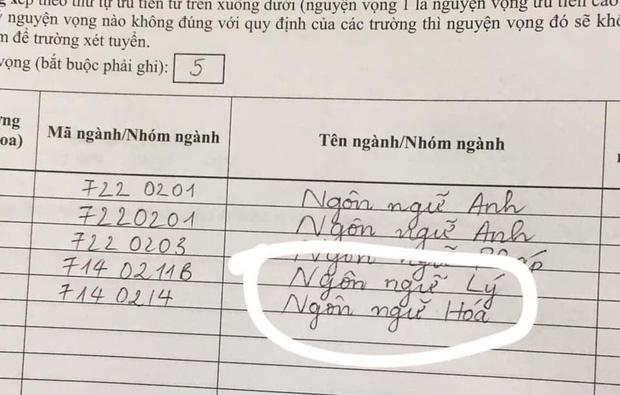 xếp theo thứ tự ưu tiên từ trên xuống dưới (nguyện vọng 1 là nguyện vọng ưu tiên cao
nguyện vọng nào không đúng với quy định của các trường thì nguyện vọng đó sẽ
để trường xét tuyển.
vọng (bắt buộc phải ghi): 5
Mã ngành/Nhóm ngành Tên ngành/Nhóm ngành
722 0201 Ngôn ngữ Anh
7220201 Ngôn ngữ Anh
722 0203 Ngôn ngữ Pháp
714 0211B Ngôn ngữ Lý
714 0214 Ngôn ngữ Hóa